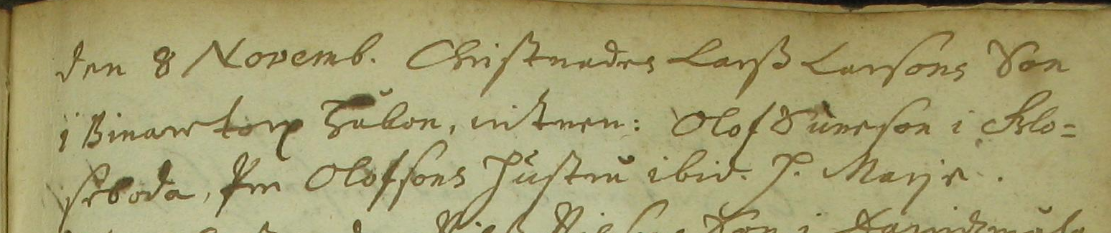 den 8 Novemb. Christnades Larß Larsons Son
i Binaretorp Håkon, vitnen: Olof Suneson i Klo=
seboda, Per Olofsons Hustru ibid. H. Marje.
Son i